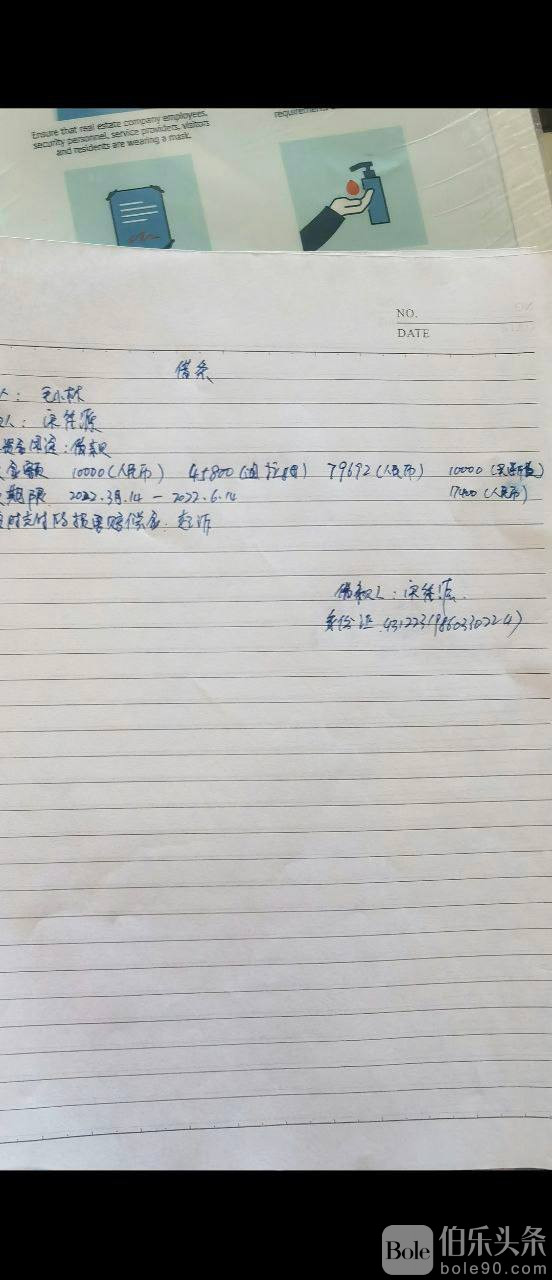 Ensure that real estate company employees,
security personnel, service providers, visitors
and residents are wearing a mask.
NO.
DATE
借条
人：毛小林
人：宋佳源
用途：借款
金额 10000（人民币） 45800（ ） 79692（人民币） 10000（ ）
期限 2022.3月.14 — 2022.6.14 17400（人民币）
时支付的损害赔偿金：起诉
借款人：宋佳源
身份证
Bole 伯乐头条
bole90.com